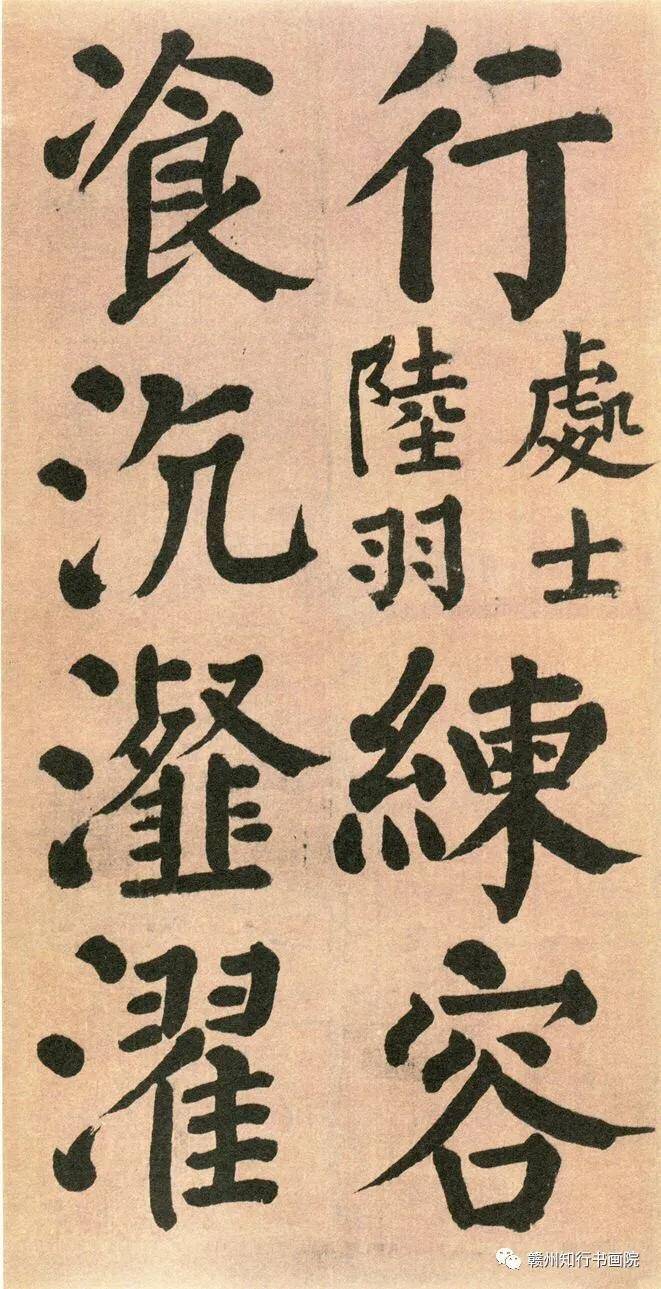 行
處士
陸羽
練容
飡沆瀣濯
赣州知行书画院